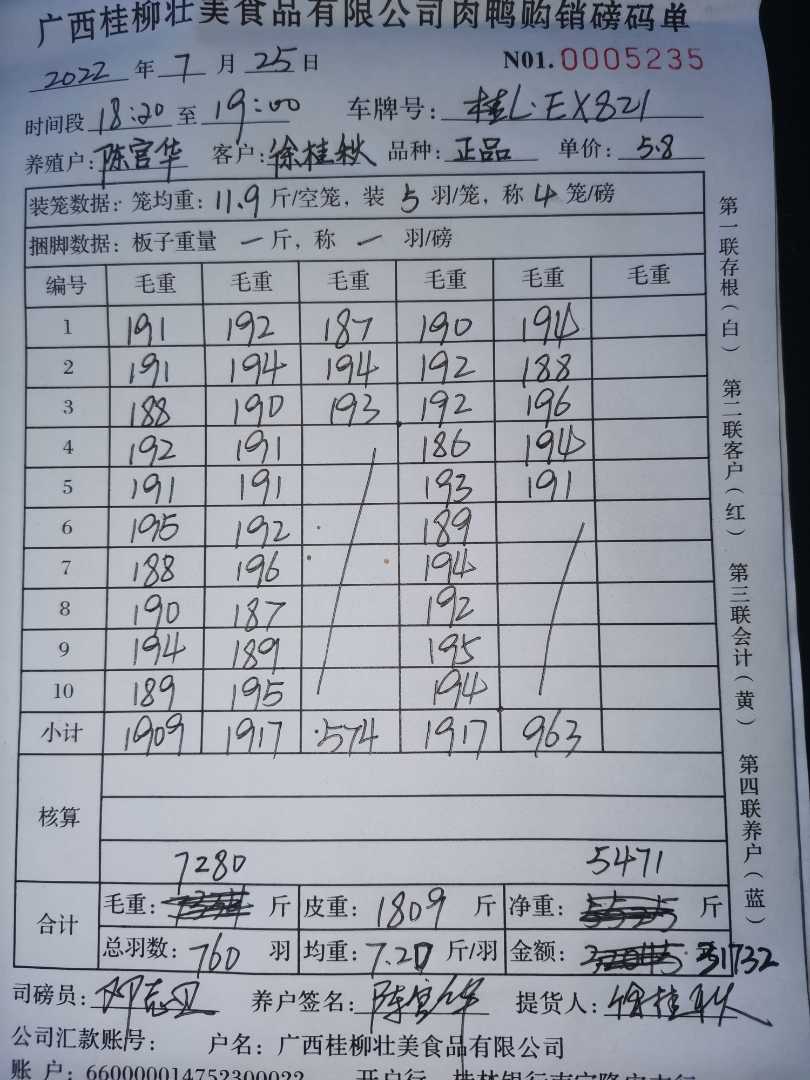 广西桂柳壮美食品有限公司肉鸭购销磅码单
2022 年 7 月 25 日 N01. 0005235
时间段 18:20 至 19:00 车牌号: 桂L·EX821
养殖户: 陈宫华 客户: 徐桂秋 品种: 正品 单价: 5.8
装笼数据: 笼均重: 11.9 斤/空笼, 装 5 羽/笼, 称 4 笼/磅
捆脚数据: 板子重量 一 斤, 称 一 羽/磅
编号 毛重 毛重 毛重 毛重 毛重 毛重
1 191 192 187 190 194
2 191 194 194 192 188
3 188 190 193 192 196
4 192 191 186 194
5 191 191 193 191
6 195 192 189
7 188 196 194
8 190 187 192
9 194 189 195
10 189 195 194
小计 1909 1917 574 1917 963
核算
7280 5471
合计 毛重: 斤 皮重: 1809 斤 净重: 斤
总羽数: 760 羽 均重: 7.20 斤/羽 金额: 31732
司磅员: 养户签名: 陈宫华 提货人: 徐桂秋
公司汇款账号: 户名: 广西桂柳壮美食品有限公司
账 户: 660000014752300022 开户行
第一联存根(白)
第二联客户(红)
第三联会计(黄)
第四联养户(蓝)